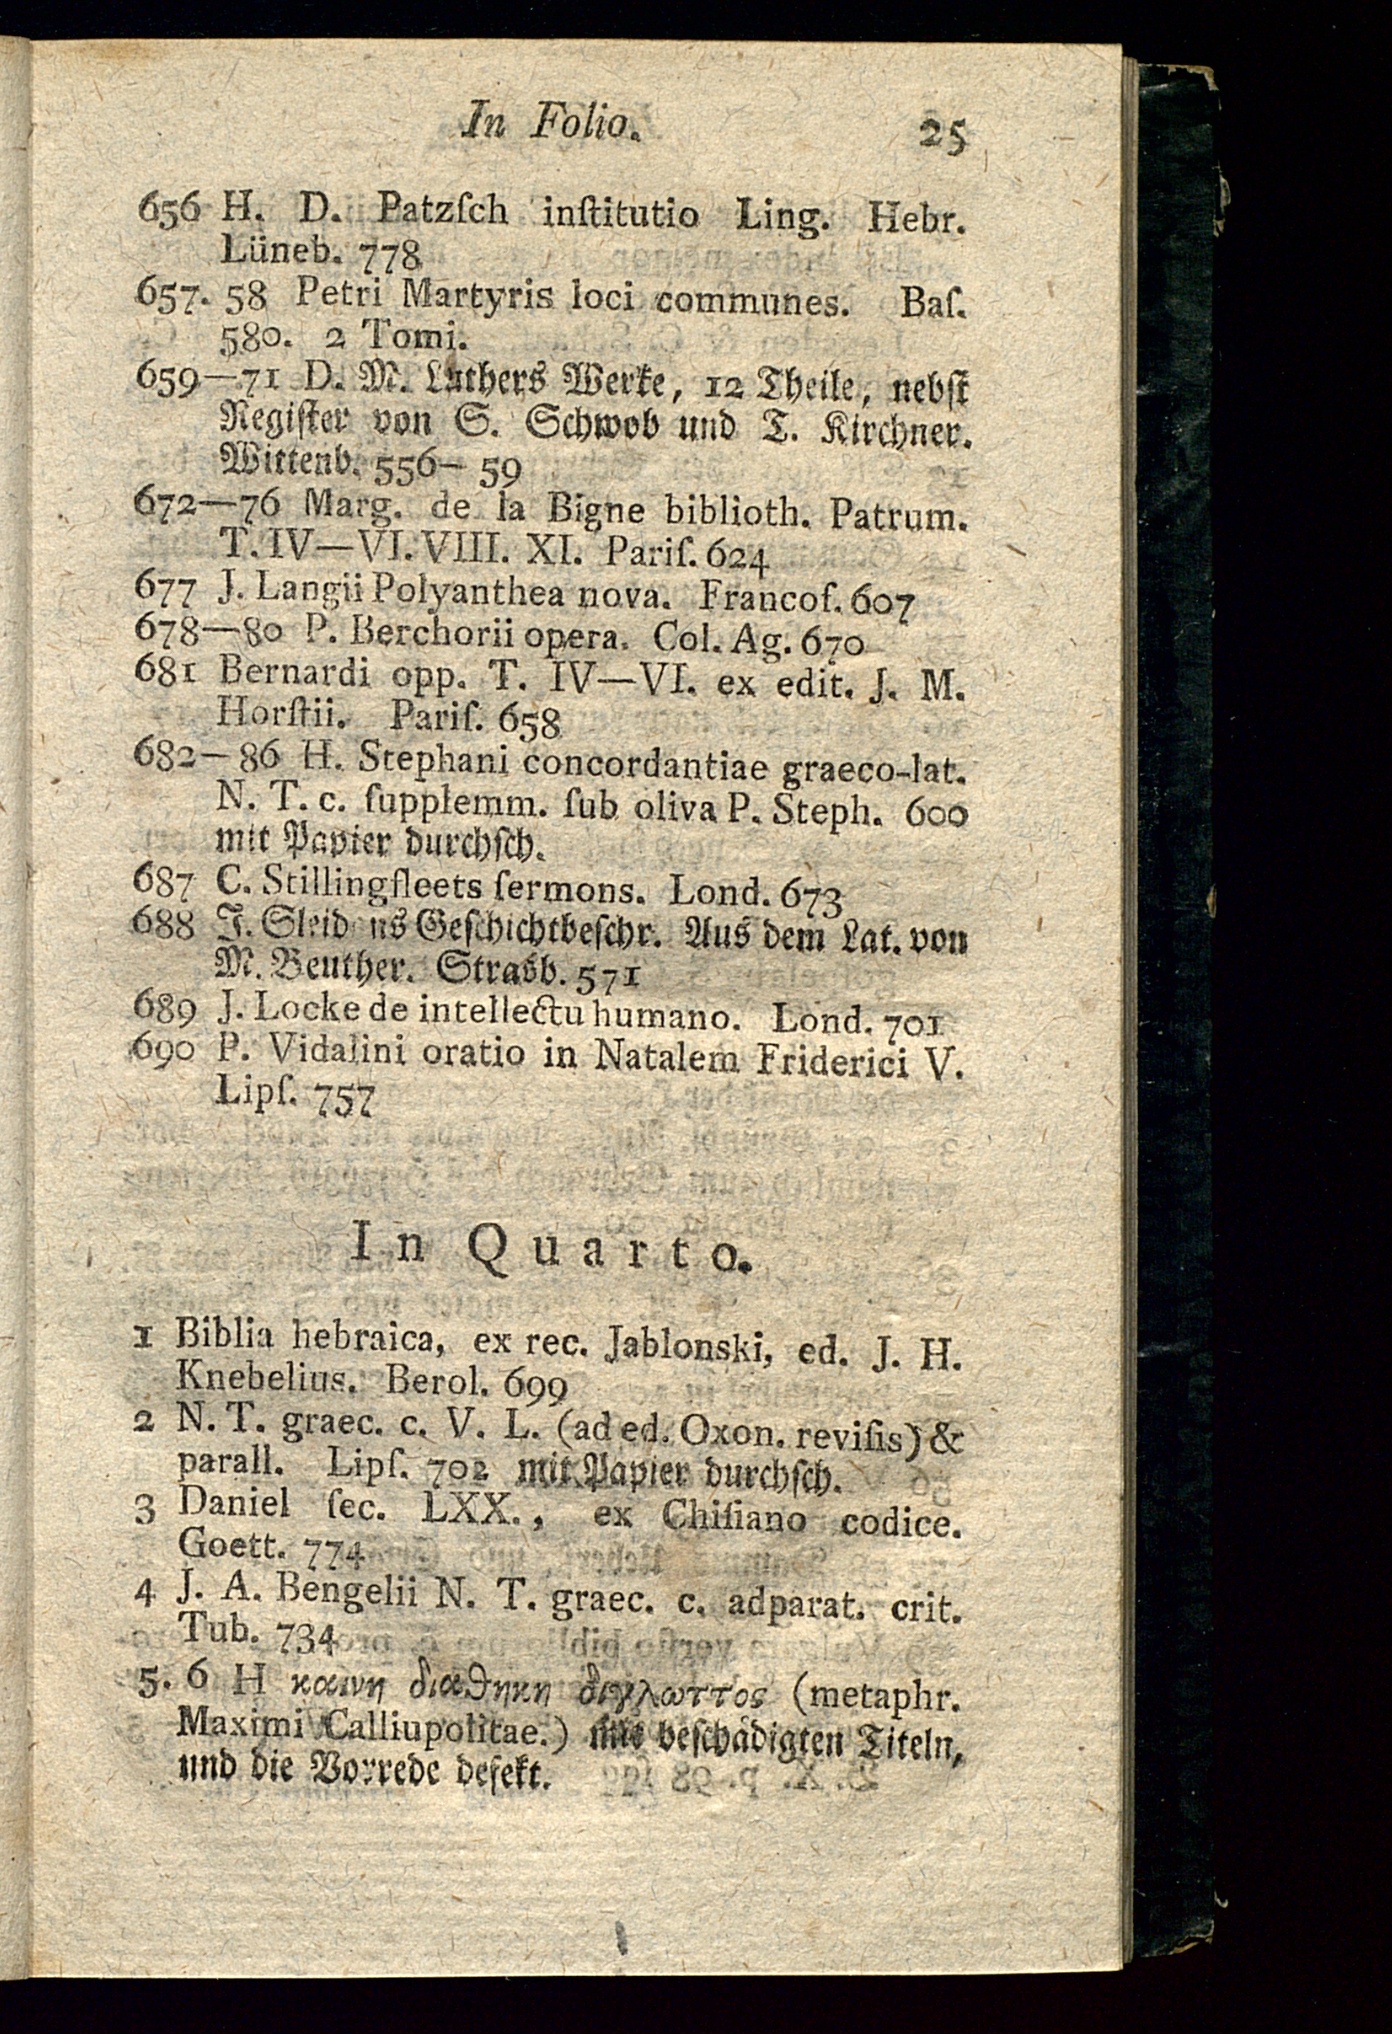 In Folio. 25
656 H. D. Patzſch inſtitutio Ling. Hebr.
Lüneb. 778
657. 58 Petri Martyris loci communes. Baſ.
580. 2 Tomi.
659—71 D. M. Luthers Werke, 12 Theile, nebſt
Regiſter von S. Schwob und T. Kirchner.
Wittenb. 556— 59
672—76 Marg. de la Bigne biblioth. Patrum.
T. IV—VI. VIII. XI. Pariſ. 624
677 J. Langii Polyanthea nova. Francoſ. 607
678—80 P. Berchorii opera. Col. Ag. 670
681 Bernardi opp. T. IV—VI. ex edit. J. M.
Horſtii. Pariſ. 658
682—86 H. Stephani concordantiae graeco-lat.
N. T. c. ſupplemm. ſub oliva P. Steph. 600
mit Papier durchſch.
687 C. Stillingfleets ſermons. Lond. 673
688 J. Sleid ns Geſchichtbeſchr. Aus dem Lat. von
M. Beuther. Strasb. 571
689 J. Locke de intellectu humano. Lond. 701
690 P. Vidalini oratio in Natalem Friderici V.
Lipſ. 757
In Quarto.
1 Biblia hebraica, ex rec. Jablonski, ed. J. H.
Knebelius. Berol. 699
2 N. T. graec. c. V. L. (ad ed. Oxon. reviſis) &
parall. Lipſ. 702 mit Papier durchſch.
3 Daniel ſec. LXX., ex Chiſiano codice.
Goett. 774
4 J. A. Bengelii N. T. graec. c. adparat. crit.
Tub. 734
5. 6 Η καινη διαθηκη διγλωττος (metaphr.
Maximi Calliupolitae.) mit beſchädigten Titeln,
und die Vorrede defekt.